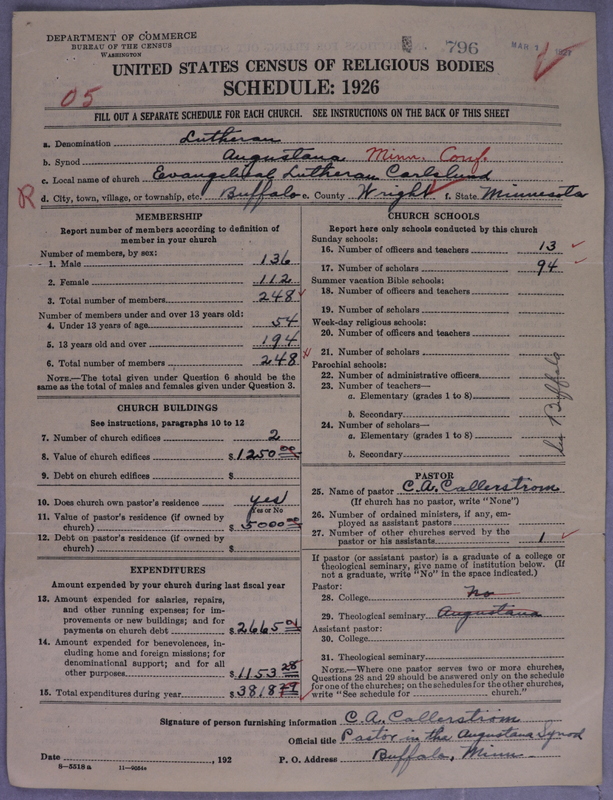 DEPARTMENT OF COMMERCE
BUREAU OF THE CENSUS
WASHINGTON
796
MAR 1
UNITED STATES CENSUS OF RELIGIOUS BODIES
SCHEDULE: 1926
05
FILL OUT A SEPARATE SCHEDULE FOR EACH CHURCH. SEE INSTRUCTIONS ON THE BACK OF THIS SHEET
a. Denomination Lutheran
b. Synod Augustana Minn. Conf.
c. Local name of church Evangelical Lutheran Carlslund
R d. City, town, village, or township, etc. Buffalo e. County Wright f. State Minnesota
MEMBERSHIP
Report number of members according to definition of
member in your church
Number of members, by sex:
1. Male 136
2. Female 112
3. Total number of members 248
Number of members under and over 13 years old:
4. Under 13 years of age 54
5. 13 years old and over 194
6. Total number of members 248
NOTE.—The total given under Question 6 should be the
same as the total of males and females given under Question 3.
CHURCH BUILDINGS
See instructions, paragraphs 10 to 12
7. Number of church edifices 2
8. Value of church edifices $1250 00
9. Debt on church edifices $
10. Does church own pastor's residence yes
Yes or No
11. Value of pastor's residence (if owned by
church) $5000 00
12. Debt on pastor's residence (if owned by
church) $
EXPENDITURES
Amount expended by your church during last fiscal year
13. Amount expended for salaries, repairs,
and other running expenses; for im-
provements or new buildings; and for
payments on church debt $2665
14. Amount expended for benevolences, in-
cluding home and foreign missions; for
denominational support; and for all
other purposes $1153 28
15. Total expenditures during year $3818
CHURCH SCHOOLS
Report here only schools conducted by this church
Sunday schools:
16. Number of officers and teachers 13
17. Number of scholars 94
Summer vacation Bible schools:
18. Number of officers and teachers
19. Number of scholars
Week-day religious schools:
20. Number of officers and teachers
21. Number of scholars
Parochial schools:
22. Number of administrative officers
23. Number of teachers—
a. Elementary (grades 1 to 8)
b. Secondary
24. Number of scholars—
a. Elementary (grades 1 to 8)
b. Secondary
Buffalo
PASTOR
25. Name of pastor C. A. Callerstrom
(If church has no pastor, write "None")
26. Number of ordained ministers, if any, em-
ployed as assistant pastors
27. Number of other churches served by the
pastor or his assistants 1
If pastor (or assistant pastor) is a graduate of a college or
theological seminary, give name of institution below. (If
not a graduate, write "No" in the space indicated.)
Pastor:
28. College No
29. Theological seminary Augustana
Assistant pastor:
30. College
31. Theological seminary
NOTE.—Where one pastor serves two or more churches,
Questions 28 and 29 should be answered only on the schedule
for one of the churches; on the schedules for the other churches,
write "See schedule for church."
Signature of person furnishing information C. A. Callerstrom
Official title Pastor in the Augustana Synod
Date , 192 P. O. Address Buffalo, Minn.
8—5518 a 11—9054